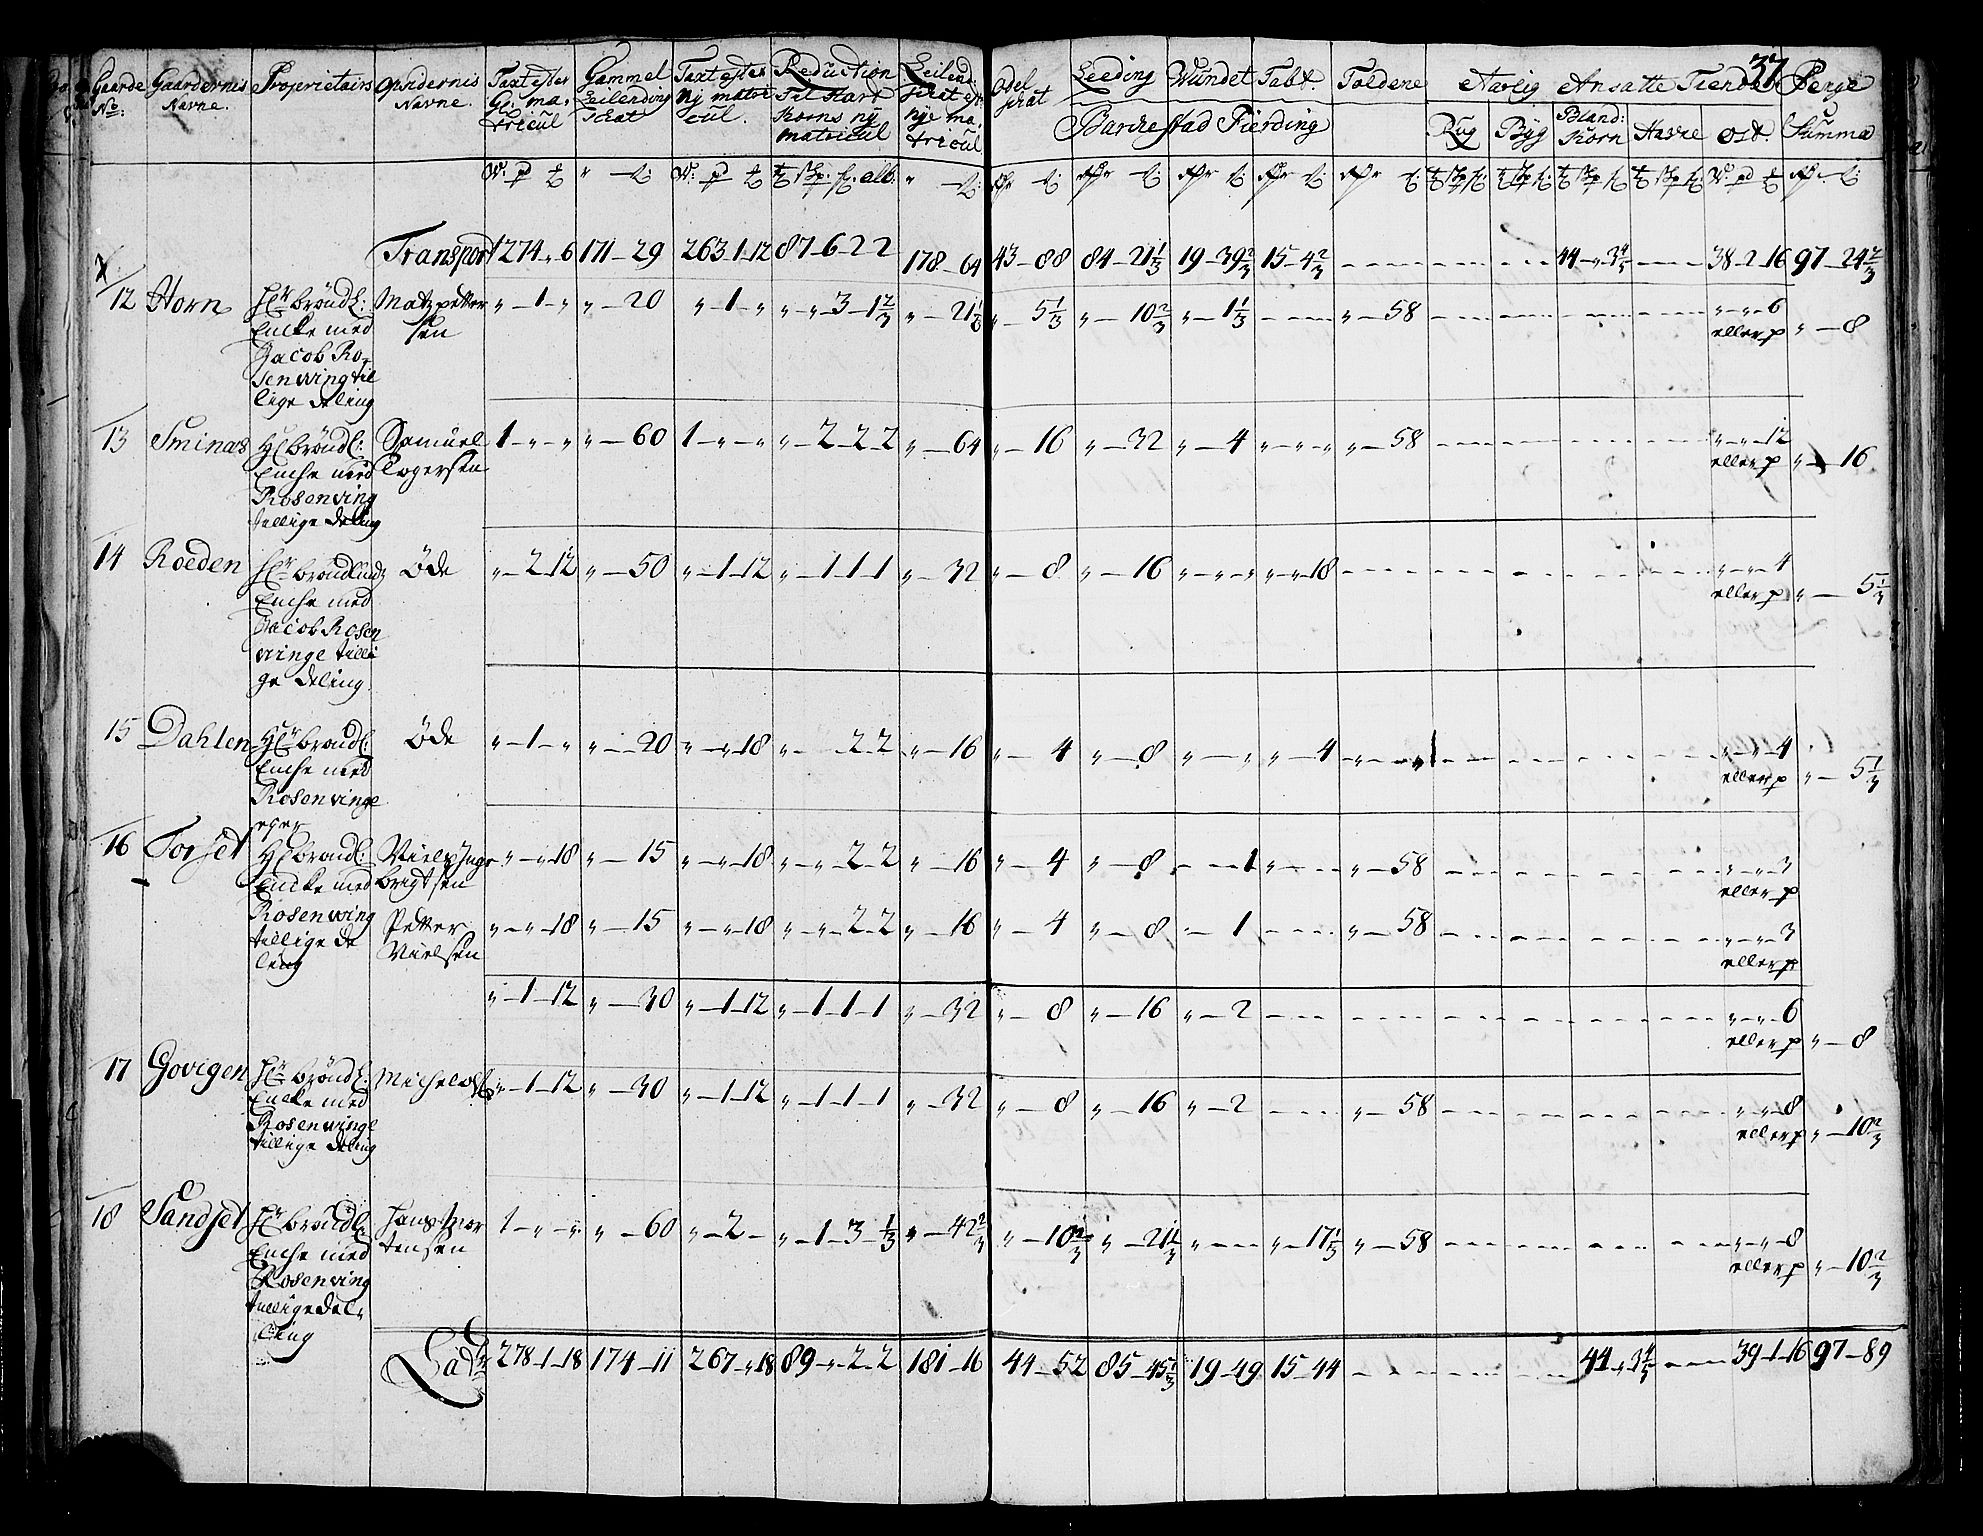 37
Gaarde No: Gaardernis Navne. Proprietairs Opsidernis Navne. Taxt efter Gl: matricul Gammel Leilending Schat Taxt efter Ny matricul. Reduction Til Hart Korns ny matricul Leilend: schat eft: nye matricul Odel schat Leeding Wundet Tabt. Foldene Aarlig Ansatte Tiende Penge Summa
Barchestad Fierding
Rug Byg Bland: Korn Havre Ost.
Transport 1274 „ 6 171 - 29 263 - 1 - 12 87 - 6 - 2 2 178 - 64 43 - 88 84 - 21 1/3 19 - 39 2/3 15 - 4 2/3 44 - „ 3 4/5 38 - 2 - 16 97 - 24 2/3
12 Horn Hr: bröndl: Matz petter „ - 1 - „ „ - 20 „ 1 - „ „ - „ - 3 - 1 2/3 „ - 21 1/3 „ - 5 1/3 „ - 10 2/3 „ - 1 1/3 „ - 58 „ - „ - 6
Encke med sen eller p „ - 8
Jacob Ro-
senwing til
lige deling
13 Sminæs Hr: bröndl: Samuel 1 - „ - „ „ - 60 1 - „ - „ „ - 2 - 2 2 „ - 64 „ - 16 „ - 32 „ - 4 „ - „ - „ „ - 58 „ - „ - 12
Enche med Togersen eller p „ - 16
Rosenving
tillige deling
14 Roeden Hr: bröndlundz Öde „ - 2 - 12 „ - 50 „ - 1 - 12 „ - 1 - 1 - 1 „ - 32 „ - 8 „ - 16 „ - „ - „ „ - „ - 18 „ - „ - 4
Enche med eller p „ - 5 1/3
Jacob Rosen
vinge tilli
ge deling
15 Dahlen Hr: brondl: Öde „ - 1 - „ „ - 20 „ - „ - 18 „ - 2 - 2 „ - 16 „ - 4 „ - 8 „ - „ „ - 4 „ - „ - 4
Enche med eller p „ - 5 1/3
Rosenvinge
eyer
16 Forset Hr: brondl: Nielz Inge „ - „ - 18 „ - 15 „ - „ - 18 „ - „ - 2 - 2 „ - 16 „ - 4 „ - 8 - 1 „ - 58 „ - „ - 3
Encke med brigtsen eller p
Rosenwing Petter „ - „ - 18 „ - 15 „ - „ - 18 „ - „ - 2 - 2 „ - 16 „ - 4 „ - 8 „ - 1 „ - 58 „ - „ - 3
tillige de Nielsen eller p
ling
„ - 1 - 12 „ - 30 „ - 1 - 12 „ - 1 - 1 - 1 „ - 32 „ - 8 „ - 16 „ - 2 „ - „ - 6
eller p „ - 8
17 Govigen Hr: bröndl: Michel „ - 1 - 12 „ - 30 „ - 1 - 12 „ - 1 - 1 - 1 „ - 32 „ - 8 „ - 16 „ - 2 „ - 58 „ - „ - 8
Encke med eller p „ - 10 2/3
Rosenvinge
tillige deling
18 Sandset Hr: bröndl: Hans Mor 1 - „ - „ „ - 60 „ - 2 - „ - 1 - 3 - 1/3 „ - 42 2/3 „ - 10 2/3 „ - 21 1/3 „ „ - 17 1/3 „ - 58 „ - „ - 8
Enche med tensen eller p „ - 10 2/3
Rosenving
tillige del-
ling
278 - 1 - 18 174 - 11 267 - „ 18 89 - „ - 2 - 2 181 - 16 44 - 52 85 - 45 1/3 19 - 49 15 - 44 44 - „ 3 4/5 39 - 1 - 16 97 - 89